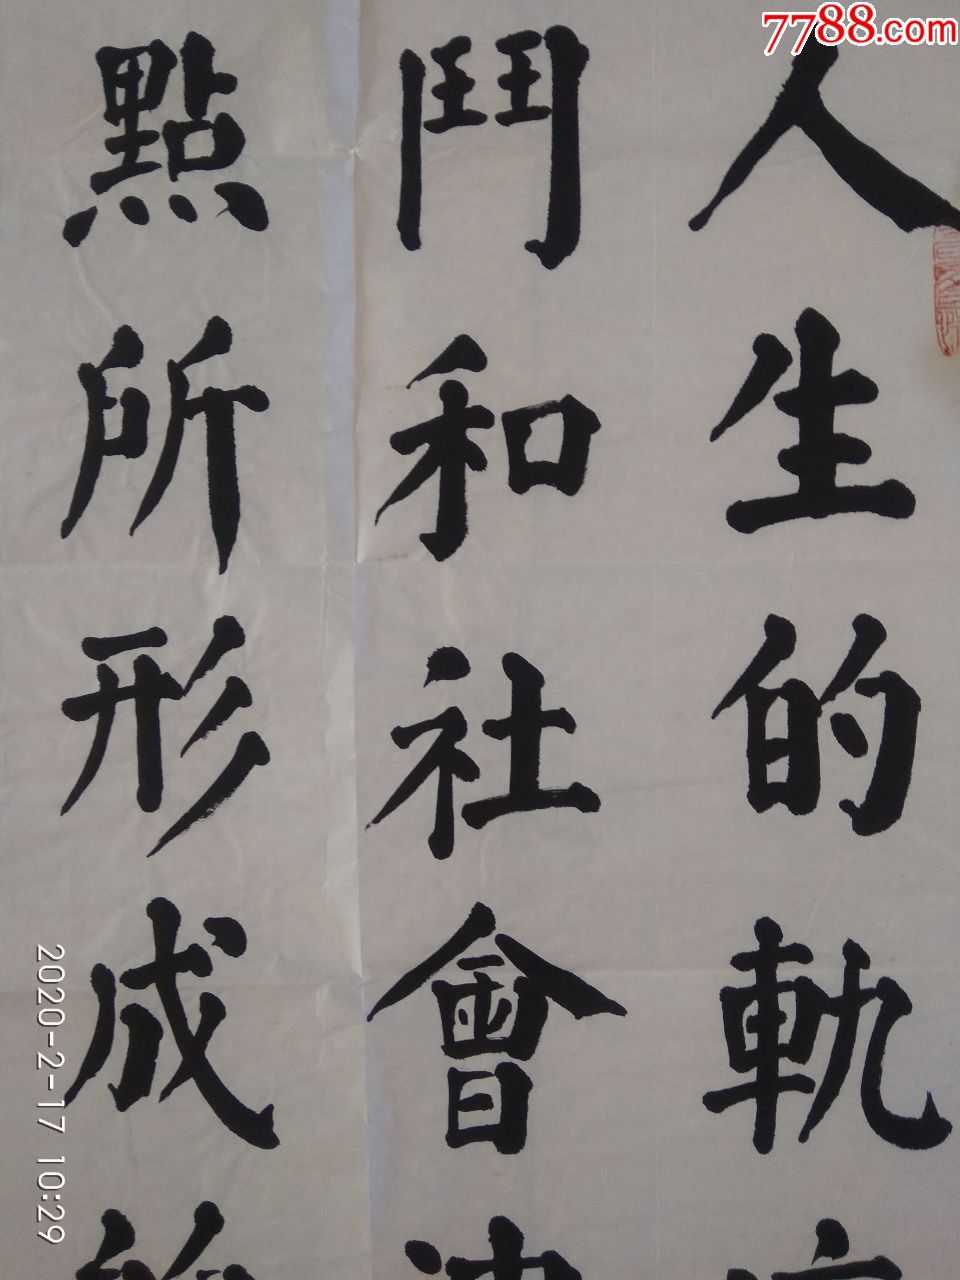 7788.com
人生的軌
鬥和社會
點所形成
2020-2-17 10:29